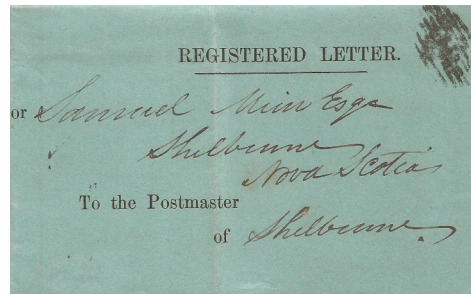 REGISTERED LETTER.
or Samuel Muir Esqe
Shelburne
Nova Scotia
To the Postmaster
of Shelburne.